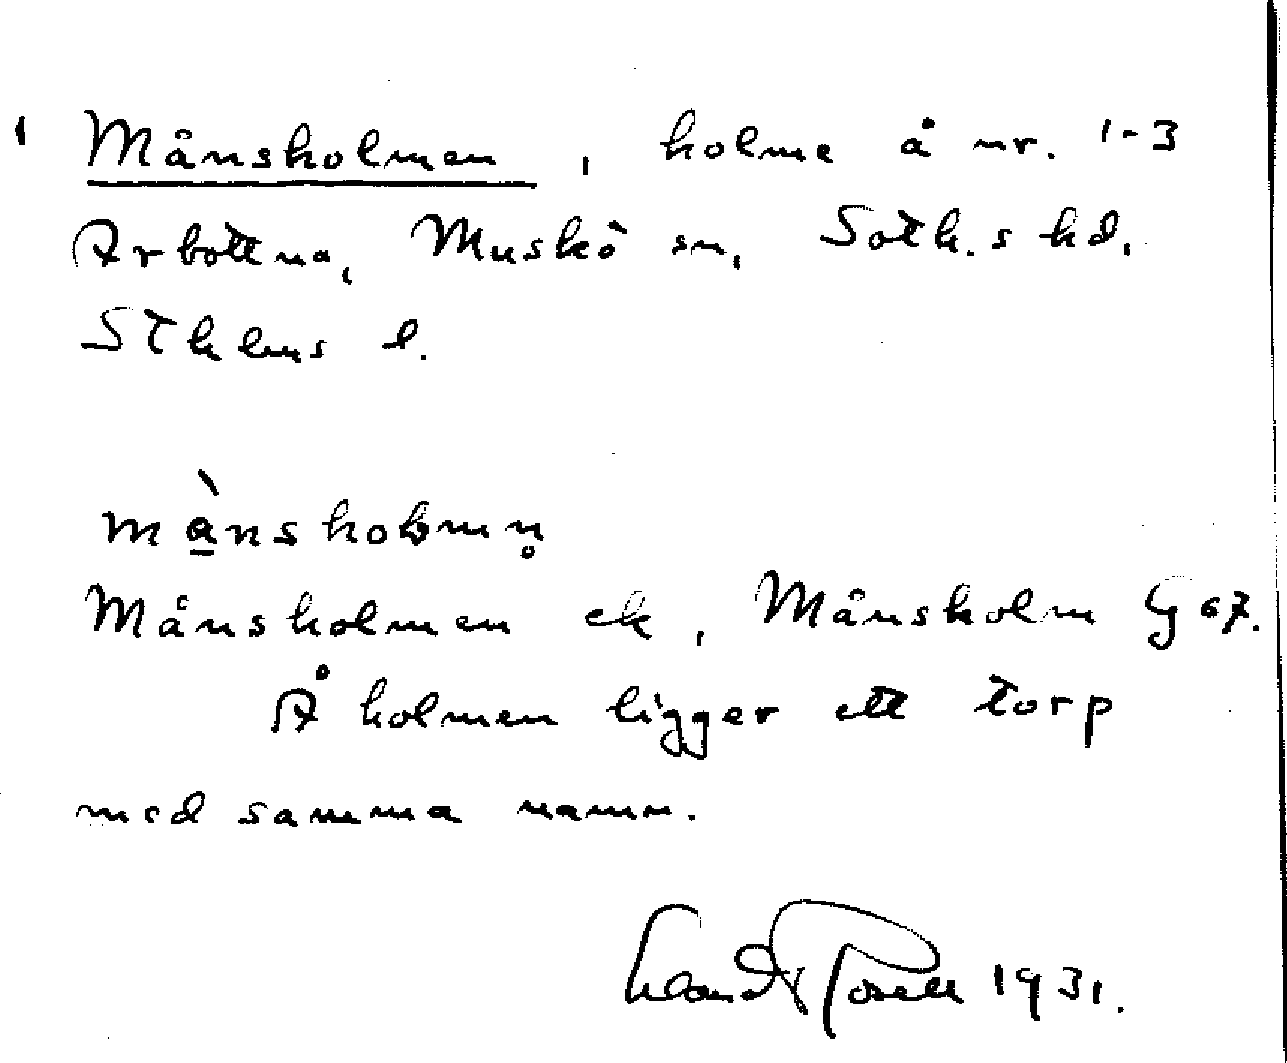 Månsholmen, holme å nr. 1-3
Arbottna, Muskö sn, Soth.s hd,
Sthlms l.
Månsholmen ek, Månsholm G 67.
Å holmen ligger ett torp
med samma namn.
1931.